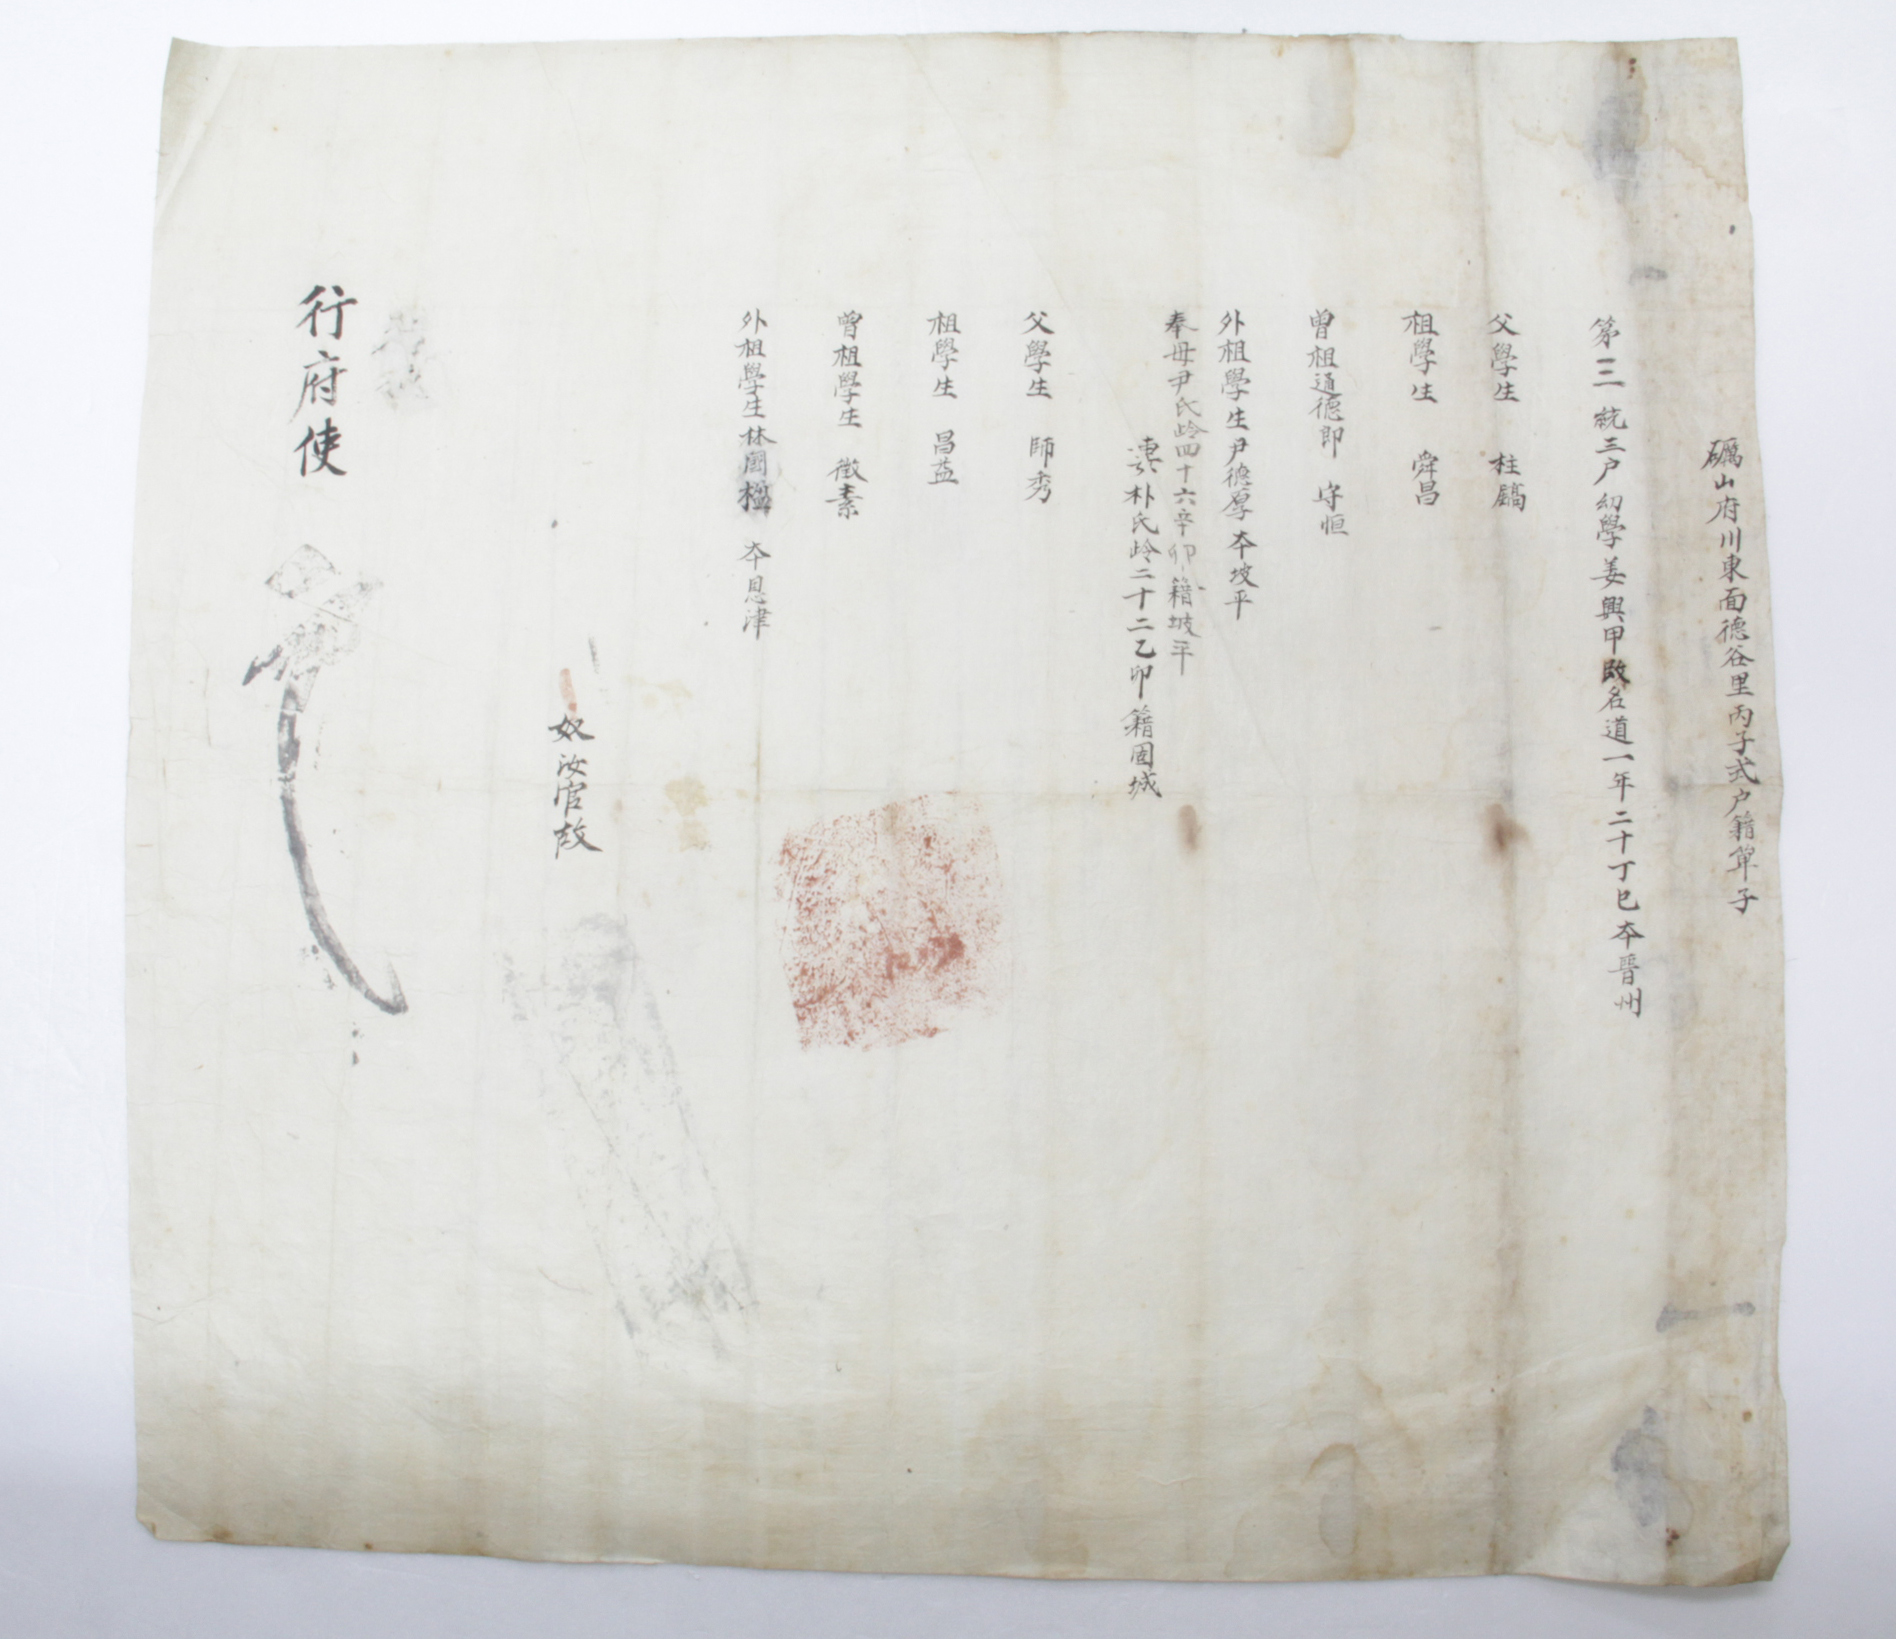 礪山府川東面德谷里丙子式户籍单子
第三統三户幼學姜興甲改名道一年二十丁巳本晋州
父學生 柱鎬
祖學生 舜昌
曾祖通德郎 守恒
外祖學生尹德厚本坡平
奉母尹氏齡四十六辛卯籍坡平
妻朴氏齡二十二乙卯籍固城
父學生 師秀
祖學生 昌益
曾祖學生 徵素
外祖學生林國楹 本恩津
奴汝官故
行府使